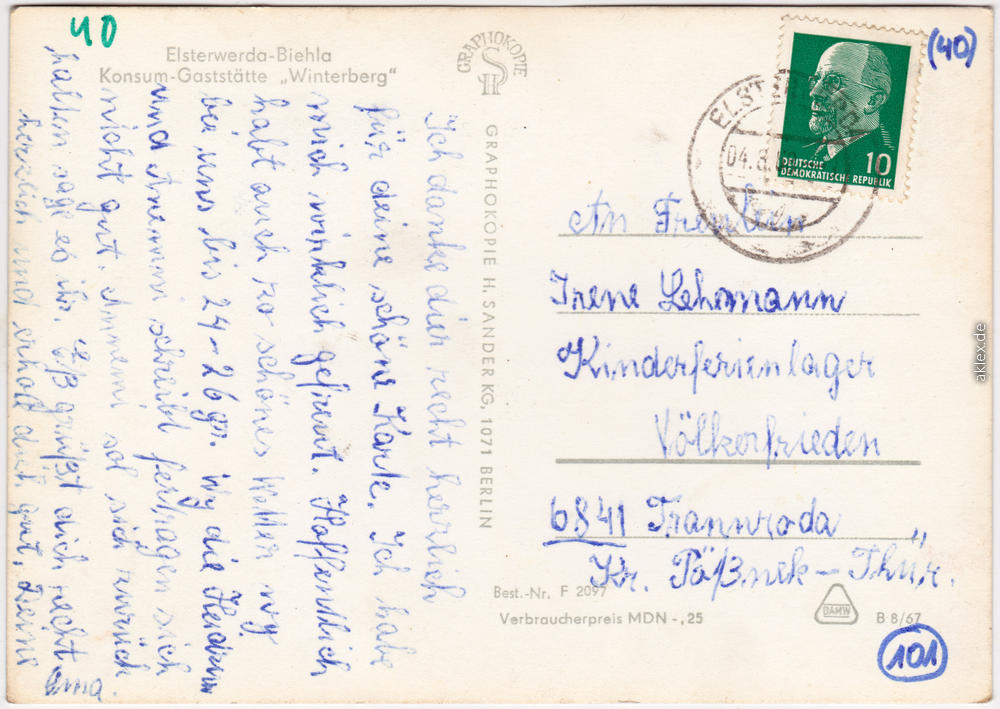 40
Elsterwerda-Biehla
Konsum-Gaststätte „Winterberg"
GRAPHOKOPIE
SH
GRAPHOKOPIE H. SANDER KG, 1071 BERLIN
Ich danke dir recht herzlich
für deine schöne Karte. Ich habe
mich wirklich gefreut. Hoffentlich
habt auch so schönes Wetter wy
bei uns bis 24-26 gr. Wy die
und Annemi schreibt sich
nicht gut. Annemi sol sich zurück
halten sage es ihr. Es grüßt dich recht
herzlich und erhol dich gut, Deine
Oma.
(40)
ELSTERWERDA
04.8.
DEUTSCHE
DEMOKRATISCHE REPUBLIK
10
An Freulein
Irene Lehmann
Kinderferienlager
Völkerfrieden
6841 Trannroda
Kr. Pößnek - Thür.
Best.-Nr. F 2097
Verbraucherpreis MDN -,25
DAMW
B 8/67
101
aklex.de